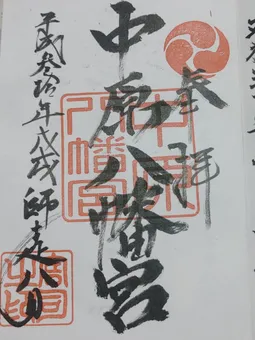 参拝
中原八幡宮
平成参拾年戊戌師走八日
中原八幡宮